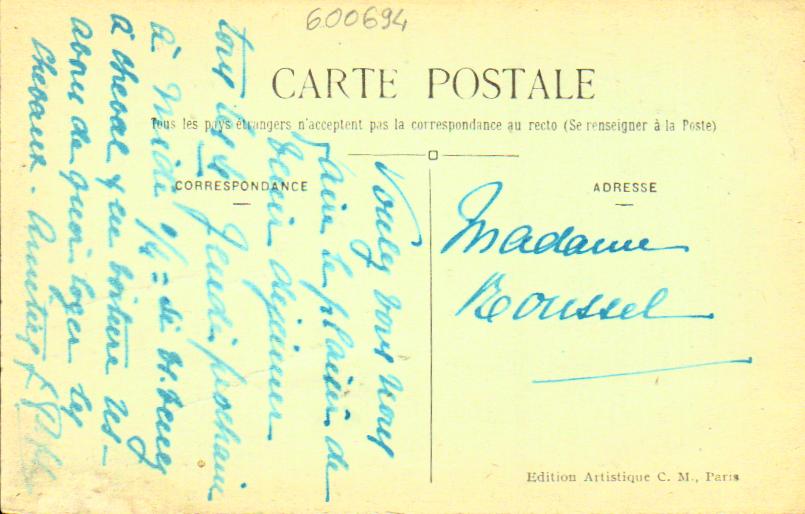 600694
CARTE POSTALE
Tous les pays étrangers n'acceptent pas la correspondance au recto (Se renseigner à la Poste)
CORRESPONDANCE
Voulez vous nous
faire le plaisir de
venir déjeuner
tous les Jeudi prochain
à Midi 1/4 = si vs. venez
à cheval & en voiture
avons de quoi loger les
chevaux. Amitiés
ADRESSE
Madame
Roussel
Edition Artistique C. M., Paris